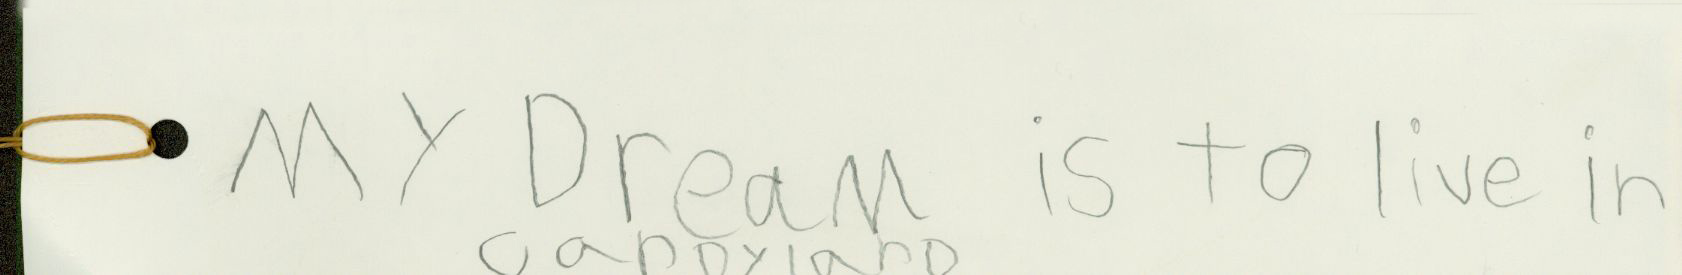 MY DreaM is to live in
canDylanD